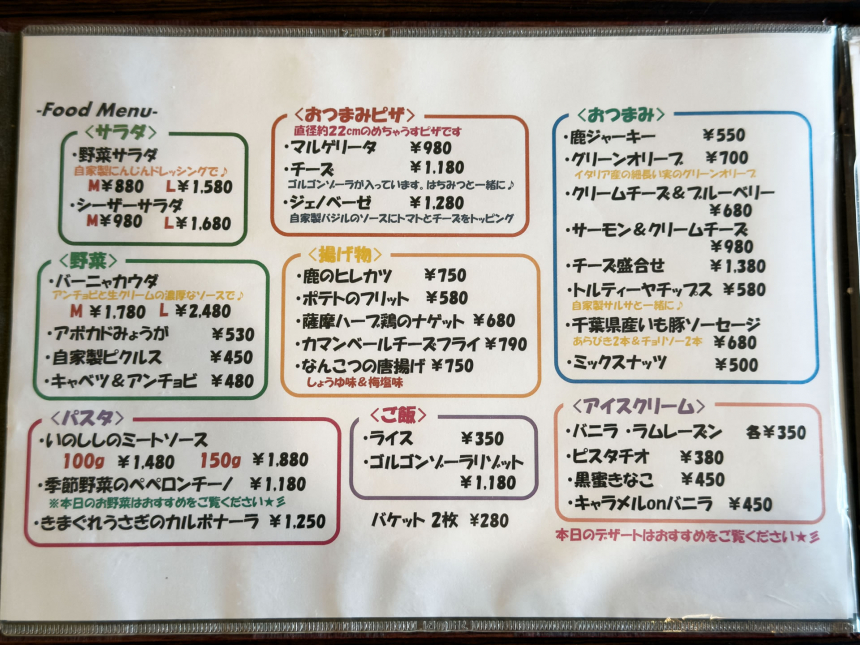 -Food Menu-
<サラダ>
・野菜サラダ
自家製にんじんドレッシングで♪
M¥880 L¥1.580
・シーザーサラダ
M¥980 L¥1.680
<おつまみピザ>
直径約22cmのめちゃうすピザです
・マルゲリータ ¥980
・チーズ ¥1.180
ゴルゴンゾーラが入っています。はちみつと一緒に♪
・ジェノベーゼ ¥1.280
自家製バジルのソースにトマトとチーズをトッピング
<おつまみ>
・鹿ジャーキー ¥550
・グリーンオリーブ ¥700
イタリア産の細長い実のグリーンオリーブ
・クリームチーズ＆ブルーベリー
¥680
・サーモン＆クリームチーズ
¥980
・チーズ盛合せ ¥1.380
・トルティーヤチップス ¥580
自家製サルサと一緒に♪
・千葉県産いも豚ソーセージ
あらびき2本＆チョリソー2本 ¥680
・ミックスナッツ ¥500
<野菜>
・バーニャカウダ
アンチョビと生クリームの濃厚なソースで♪
M ¥1.780 L ¥2.480
・アボカドみょうが ¥530
・自家製ピクルス ¥450
・キャベツ＆アンチョビ ¥480
<揚げ物>
・鹿のヒレカツ ¥750
・ポテトのフリット ¥580
・薩摩ハーブ鶏のナゲット ¥680
・カマンベールチーズフライ ¥790
・なんこつの唐揚げ ¥750
しょうゆ味＆梅塩味
<パスタ>
・いのししのミートソース
100g ¥1.480 150g ¥1.880
・季節野菜のペペロンチーノ ¥1.180
※本日のお野菜はおすすめをご覧ください★彡
・きまぐれうさぎのカルボナーラ ¥1.250
<ご飯>
・ライス ¥350
・ゴルゴンゾーラリゾット
¥1.180
バケット 2枚 ¥280
<アイスクリーム>
・バニラ ・ラムレーズン 各¥350
・ピスタチオ ¥380
・黒蜜きなこ ¥450
・キャラメルonバニラ ¥450
本日のデザートはおすすめをご覧ください★彡